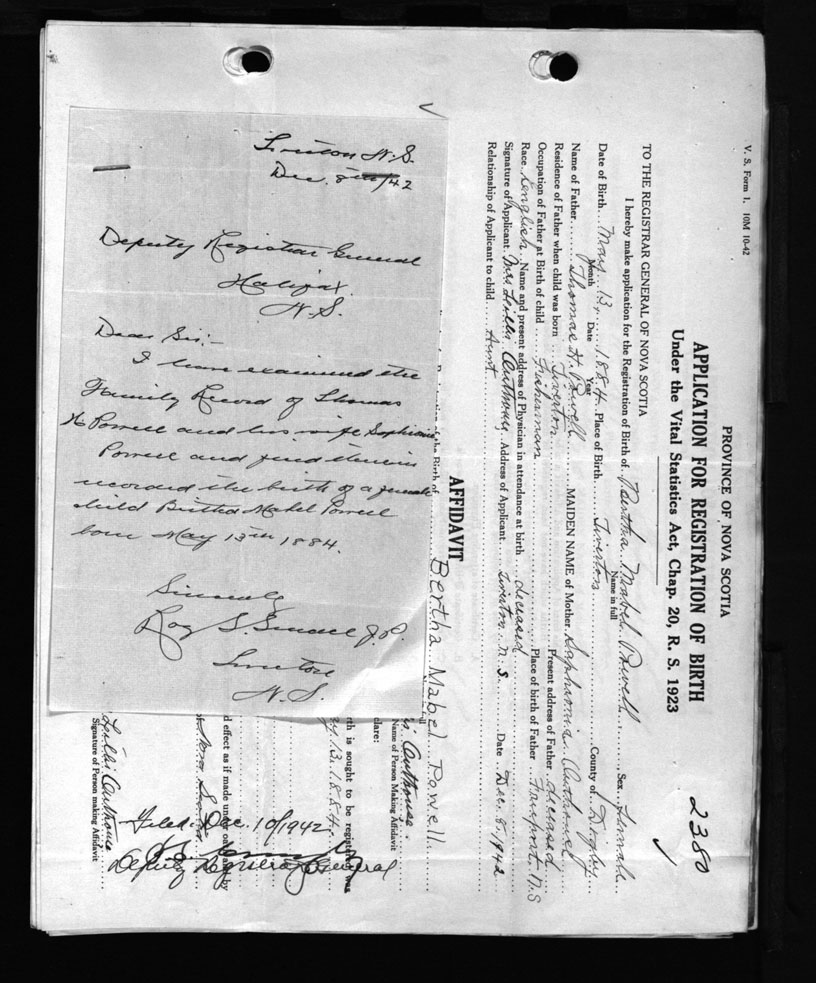 Tiverton N.S.
Dec. 8th/42
Deputy Registrar General
Halifax.
N.S.
Dear Sir:-
I have examined the
Family Record of Thomas
H Powell and his wife Sophronia
Powell and find therein
recorded the birth of a female
child Birtha Mabel Powell
born May 13th 1884.
Sincerely
Roy S. J.P.
Tiverton
N.S.
V. S. Form 1. 10M 10-42
PROVINCE OF NOVA SCOTIA
2380
APPLICATION FOR REGISTRATION OF BIRTH
Under the Vital Statistics Act, Chap. 20, R. S. 1923
TO THE REGISTRAR GENERAL OF NOVA SCOTIA
I hereby make application for the Registration of Birth of Bertha Mabel Powell Sex Female
Name in full
Date of Birth May 13, 1884 Place of Birth Tiverton County of Digby
Month Date Year
Name of Father Thomas H. Powell MAIDEN NAME of Mother Saphronia
Residence of Father when child was born Tiverton Present address of Father deceased
Occupation of Father at Birth of child Fisherman Place of birth of Father N.S
Race English Name and present address of Physician in attendance at birth deceased
Signature of Applicant Mrs Address of Applicant Tiverton N.S Date Dec. 8, 1942
Relationship of Applicant to child Aunt
AFFIDAVIT
of the Birth of Bertha Mabel Powell
full
Name of Person Making Affidavit
clare:
rth is sought to be registered was
y 13 1884
d effect as if made under oath and by
of Nova Scotia
Signature of Person making Affidavit
Filed: Dec. 10/1942
Deputy Registrar General